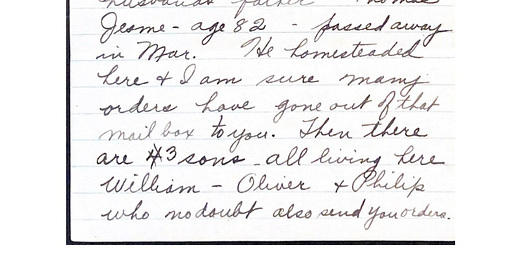 husbands father Thomas
Jesme - age 82 - passed away
in Mar. He homesteaded
here & I am sure many
orders have gone out of that
mail box to you. Then there
are 3 sons - all living here
William - Oliver & Philip
who no doubt also send you orders.